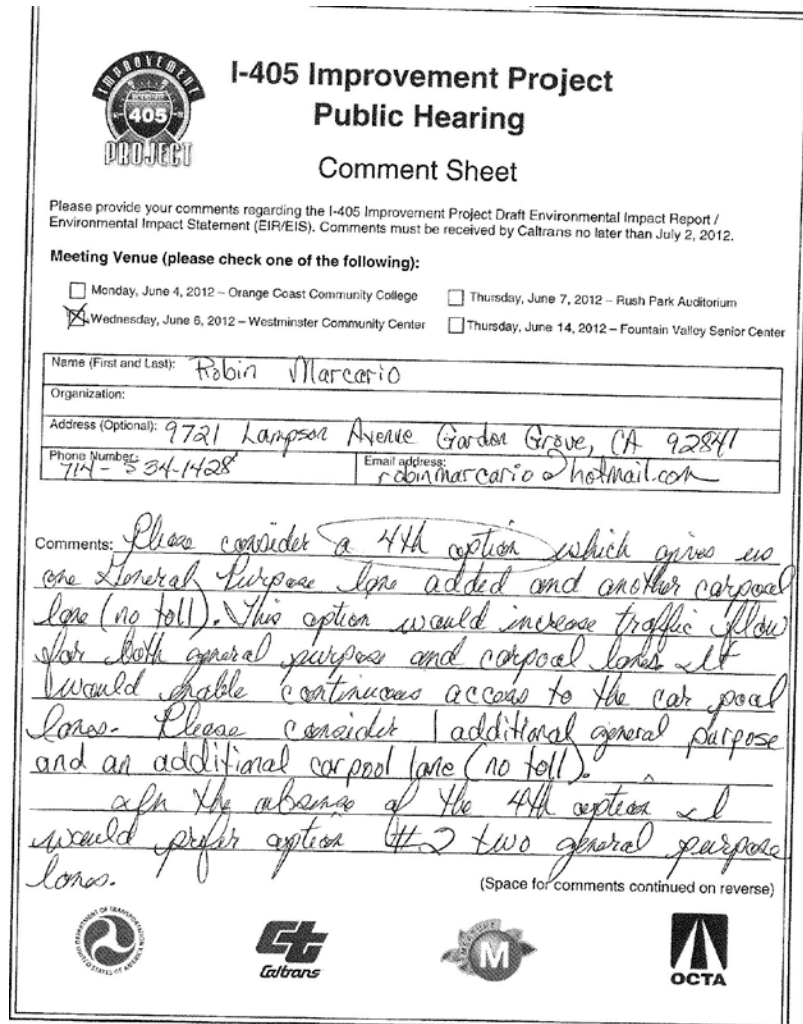 IMPROVEMENT
405
PROJECT
I-405 Improvement Project
Public Hearing
Comment Sheet
Please provide your comments regarding the I-405 Improvement Project Draft Environmental Impact Report /
Environmental Impact Statement (EIR/EIS). Comments must be received by Caltrans no later than July 2, 2012.
Meeting Venue (please check one of the following):
Monday, June 4, 2012 – Orange Coast Community College
Thursday, June 7, 2012 – Rush Park Auditorium
Wednesday, June 6, 2012 – Westminster Community Center
Thursday, June 14, 2012 – Fountain Valley Senior Center
Name (First and Last): Robin Marcario
Organization:
Address (Optional): 9721 Lampson Avenue Garden Grove, CA 92841
Phone Number: 714-534-1428
Email address: robinmarcario@hotmail.com
Comments: Please consider a 4th option which gives us
one General Purpose lane added and another carpool
lane (no toll). This option would increase traffic flow
for both general purpose and carpool lanes. It
would enable continuous access to the car pool
lanes. Please consider 1 additional general purpose
and an additional carpool lane (no toll).
In the absence of the 4th option I
would prefer option #2 two general purpose
lanes.
(Space for comments continued on reverse)
DEPARTMENT OF TRANSPORTATION
UNITED STATES OF AMERICA
Ct
Caltrans
MEASURE
M
OCTA